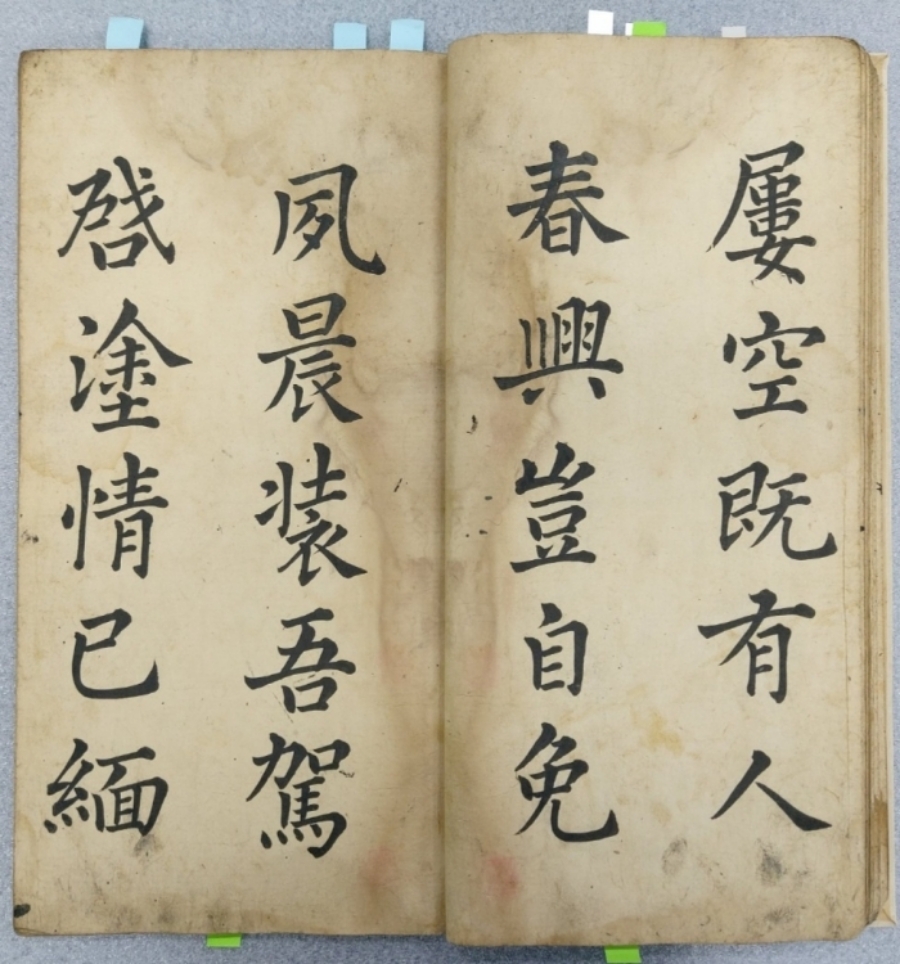 屢空既有人
春興豈自免
夙晨装吾駕
啓塗情已緬